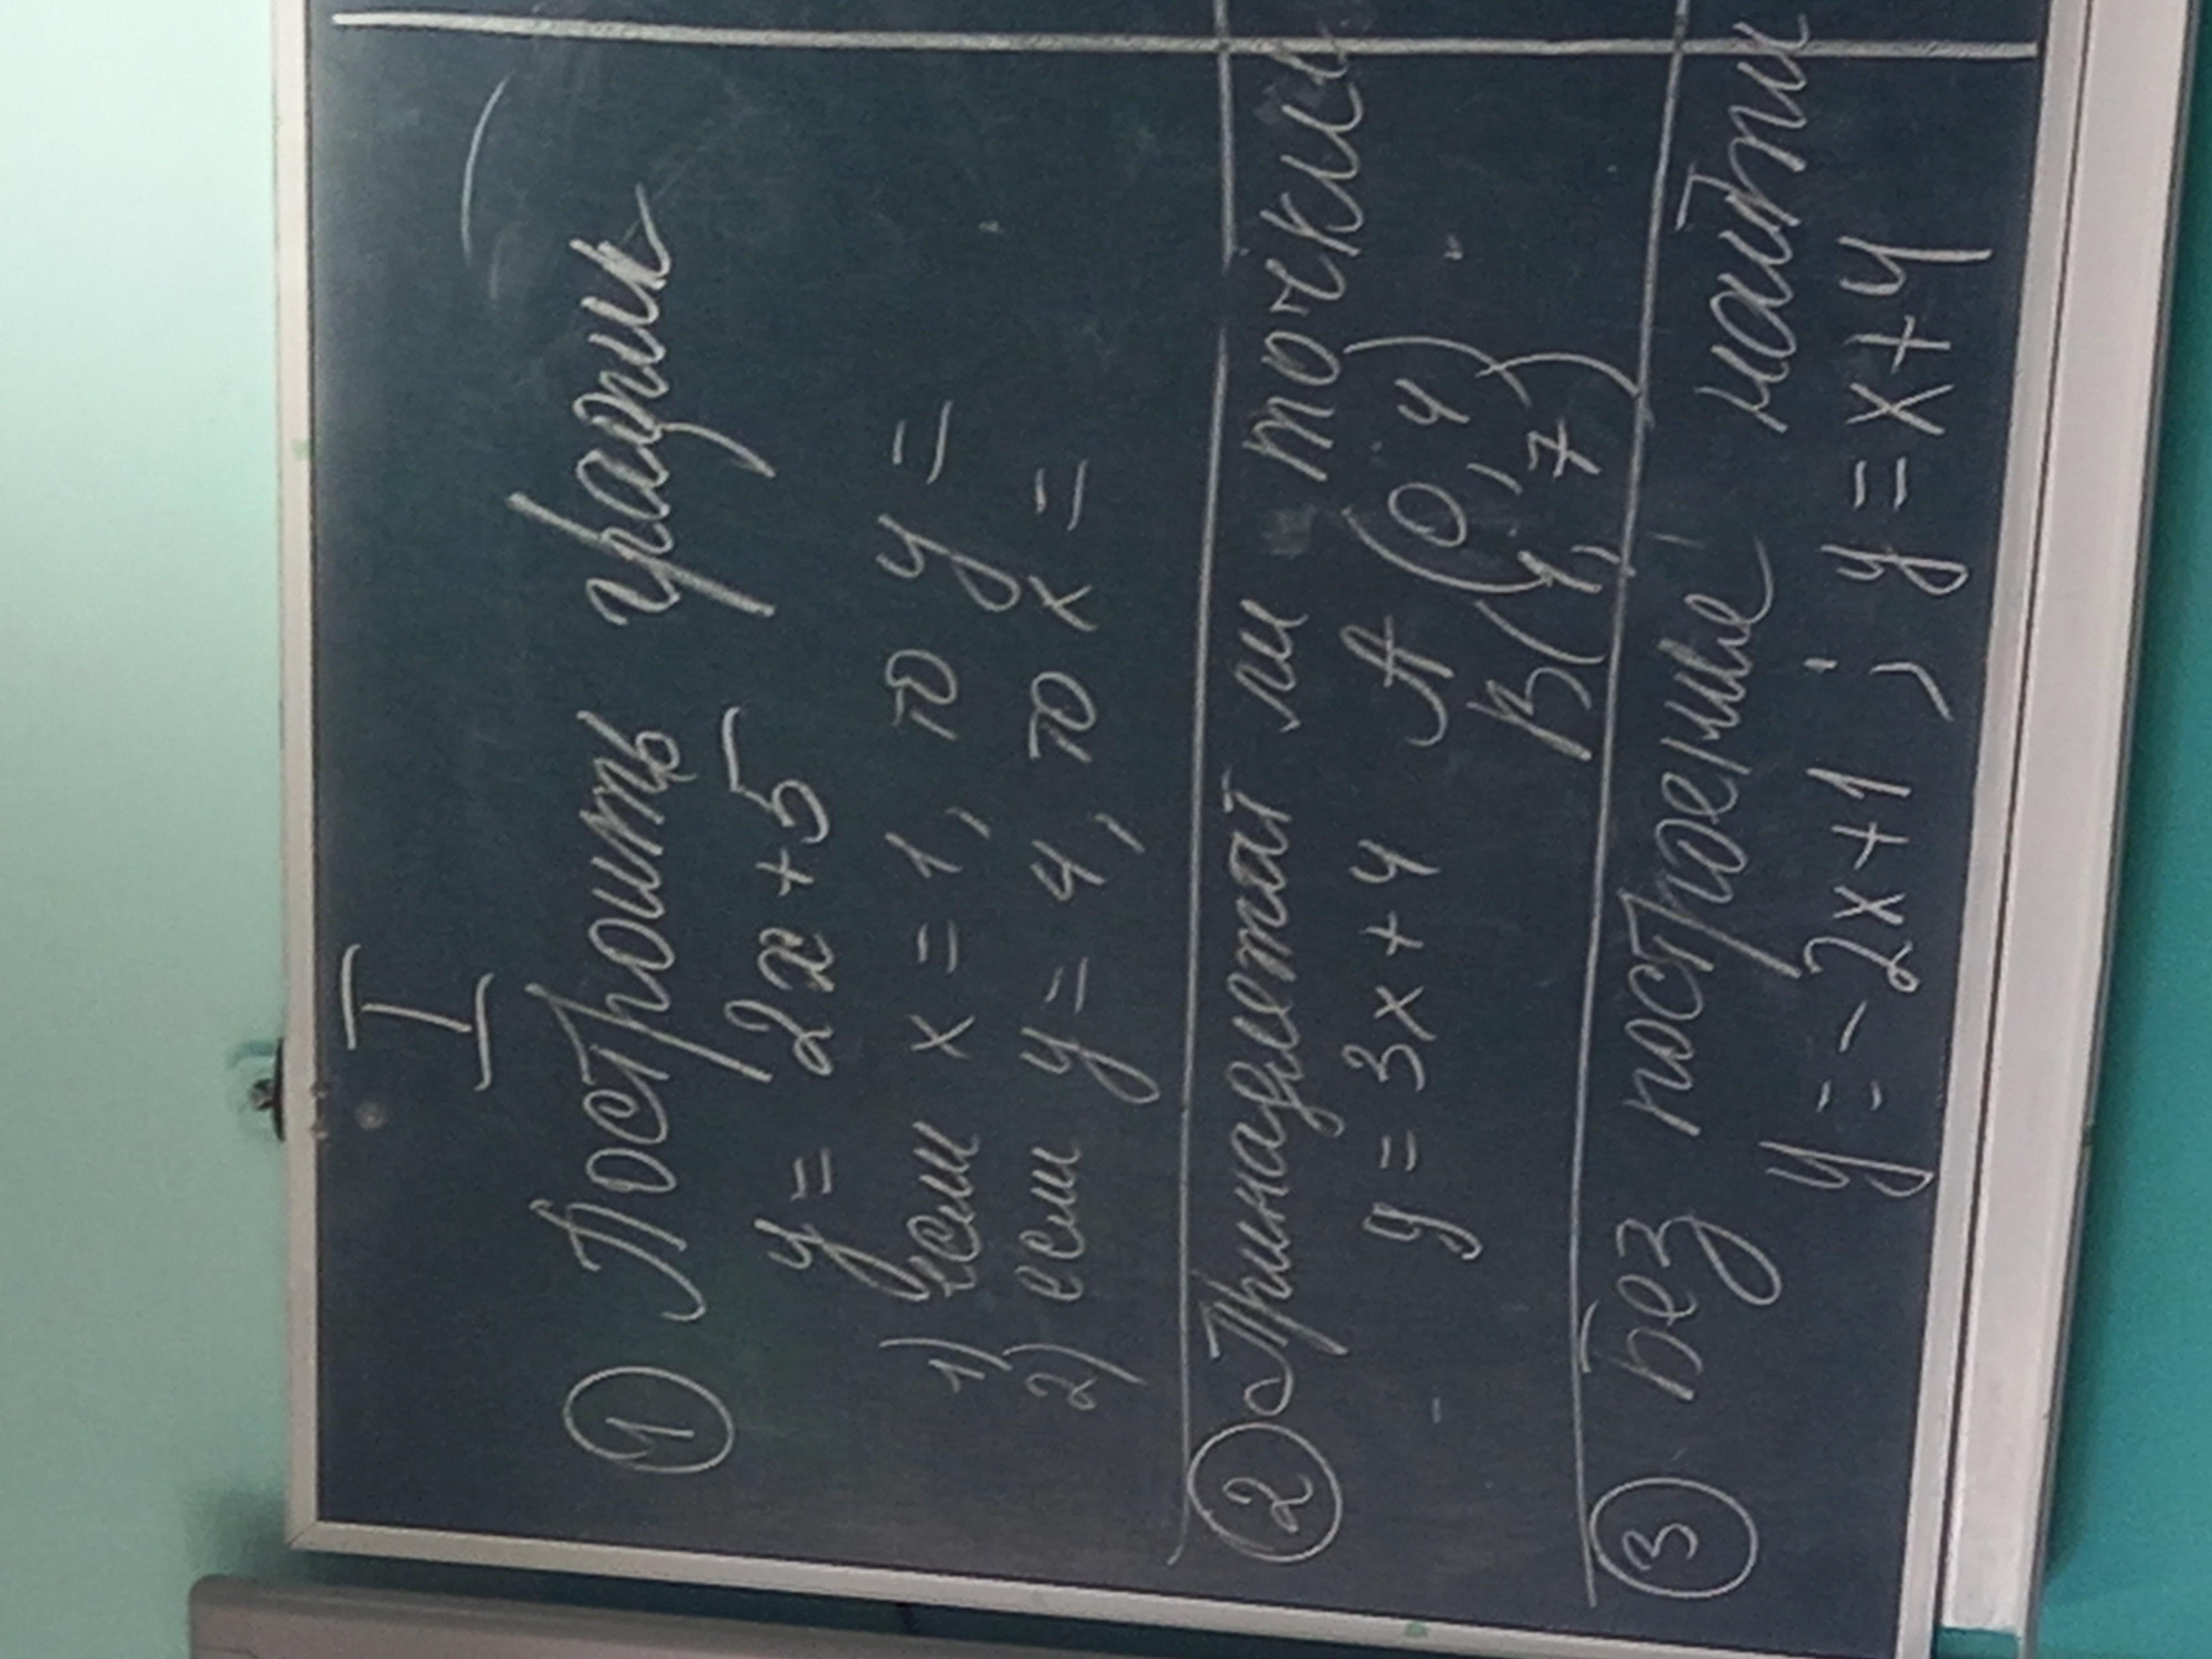 I
① Построить график
y = 2x + 5
1) если x = 1, то y =
2) если y = 4, то x =
② Принадлежат ли точки
y = 3x + 4 A (0, 4)
B (1, 7)
③ Без построение найти
y = -2x + 1 ; y = x + 4